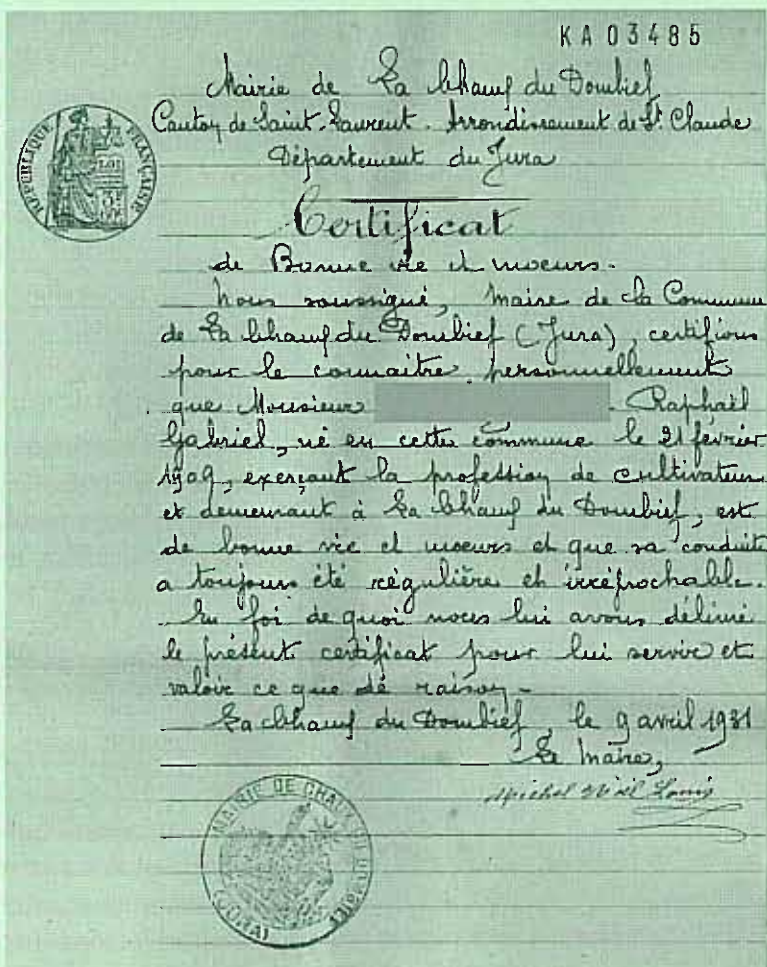 KA 03485
Mairie de La Chaux du Dombief
Canton de Saint-Laurent. Arrondissement de St Claude
Département du Jura
RÉPUBLIQUE FRANÇAISE
Certificat
de Bonne vie et moeurs.
Nous soussigné, Maire de la Commune
de La Chaux du Dombief (Jura), certifions
pour le connaitre personnellement
que Monsieur Raphaël
Gabriel, né en cette commune le 21 février
1909, exerçant la profession de cultivateur
et demeurant à La Chaux du Dombief, est
de bonne vie et moeurs et que sa conduite
a toujours été régulière et irréprochable.
En foi de quoi nous lui avons délivré
le présent certificat pour lui servir et
valoir ce que de raison -
La Chaux du Dombief, le 9 avril 1931
Le Maire,
Michel Louis
MAIRIE DE CHAUX DU DOMBIEF
(JURA)